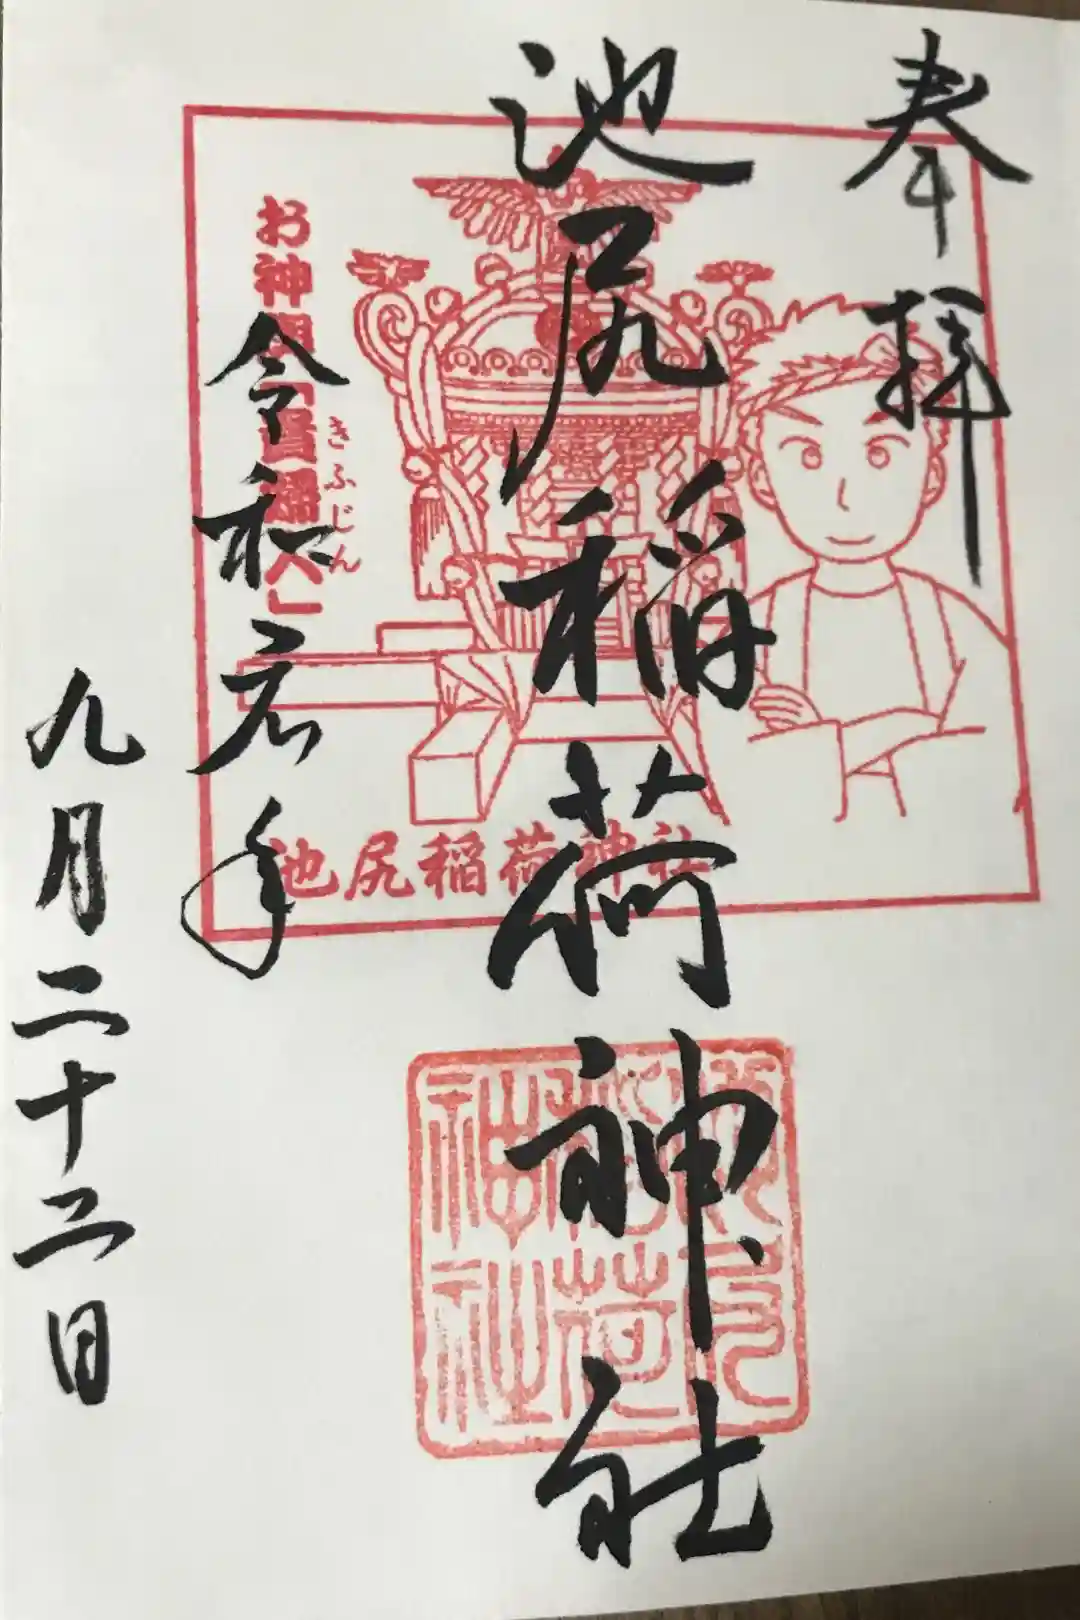 奉拝
池尻稲荷神社
令和元年
九月二十二日
お神輿「喜福人」
きふじん
池尻稲荷神社
池尻稲荷神社